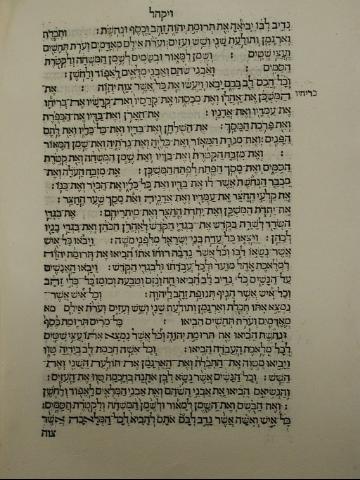 ויקהל
נדיב לבו יביאה את תרומת יהוה זהב וכסף ונחשת : ותכלת
וארגמן ותולעת שני ושש ועזים : וערת אילם מאדמים וערת תחשים
ועצי שטים : ושמן למאור ובשמים לשמן המשחה ולקטרת
הסמים : ואבני שהם ואבני מלאים לאפוד ולחשן :
וכל חכם לב בכם יבאו ויעשו את כל אשר צוה יהוה : את
המשכן את אהלו ואת מכסהו את קרסיו ואת קרשיו את בריחו בריחיו
את עמדיו ואת אדניו : את הארן ואת בדיו את הכפרת
ואת פרכת המסך : את השלחן ואת בדיו ואת כל כליו ואת לחם
הפנים : ואת מנרת המאור ואת כליה ואת נרתיה ואת שמן המאור
: ואת מזבח הקטרת ואת בדיו ואת שמן המשחה ואת קטרת
הסמים ואת מסך הפתח לפתח המשכן : את מזבח העלה ואת
מכבר הנחשת אשר לו את בדיו ואת כל כליו את הכיר ואת כנו :
את קלעי החצר את עמדיו ואת אדניה ואת מסך שער החצר :
את יתדת המשכן ואת יתדת החצר ואת מיתריהם : את בגדי
השרד לשרת בקדש את בגדי הקדש לאהרן הכהן ואת בגדי בניו
לכהן : ויצאו כל עדת בני ישראל מלפני משה : ויבאו כל איש
אשר נשאו לבו וכל אשר נדבה רוחו אתו הביאו את תרומת יהוה
למלאכת אהל מועד ולכל עבדתו ולבגדי הקדש : ויבאו האנשים
על הנשים כל נדיב לב הביאו חח ונזם וטבעת וכומז כל כלי זהב
וכל איש אשר הניף תנופת זהב ליהוה : וכל איש אשר
נמצא אתו תכלת וארגמן ותולעת שני ושש ועזים וערת אילם מא
מאדמים וערת תחשים הביאו : כל מרים תרומת כסף
ונחשת הביאו את תרומת יהוה וכל אשר נמצא אתו עצי שטים
לכל מלאכת העבדה הביאו : וכל אשה חכמת לב בידיה טוו
ויביאו מטוה את התכלת ואת הארגמן את תולעת השני ואת
השש : וכל הנשים אשר נשא לבן אתנה בחכמה טוו את העזים :
והנשאם הביאו את אבני השהם ואת אבני המלאים לאפוד ולחשן
: ואת הבשם ואת השמן למאור ולשמן המשחה ולקטרת הסמים :
כל איש ואשה אשר נדב לבם אתם להביא לכל המלאכה אשר
צוה